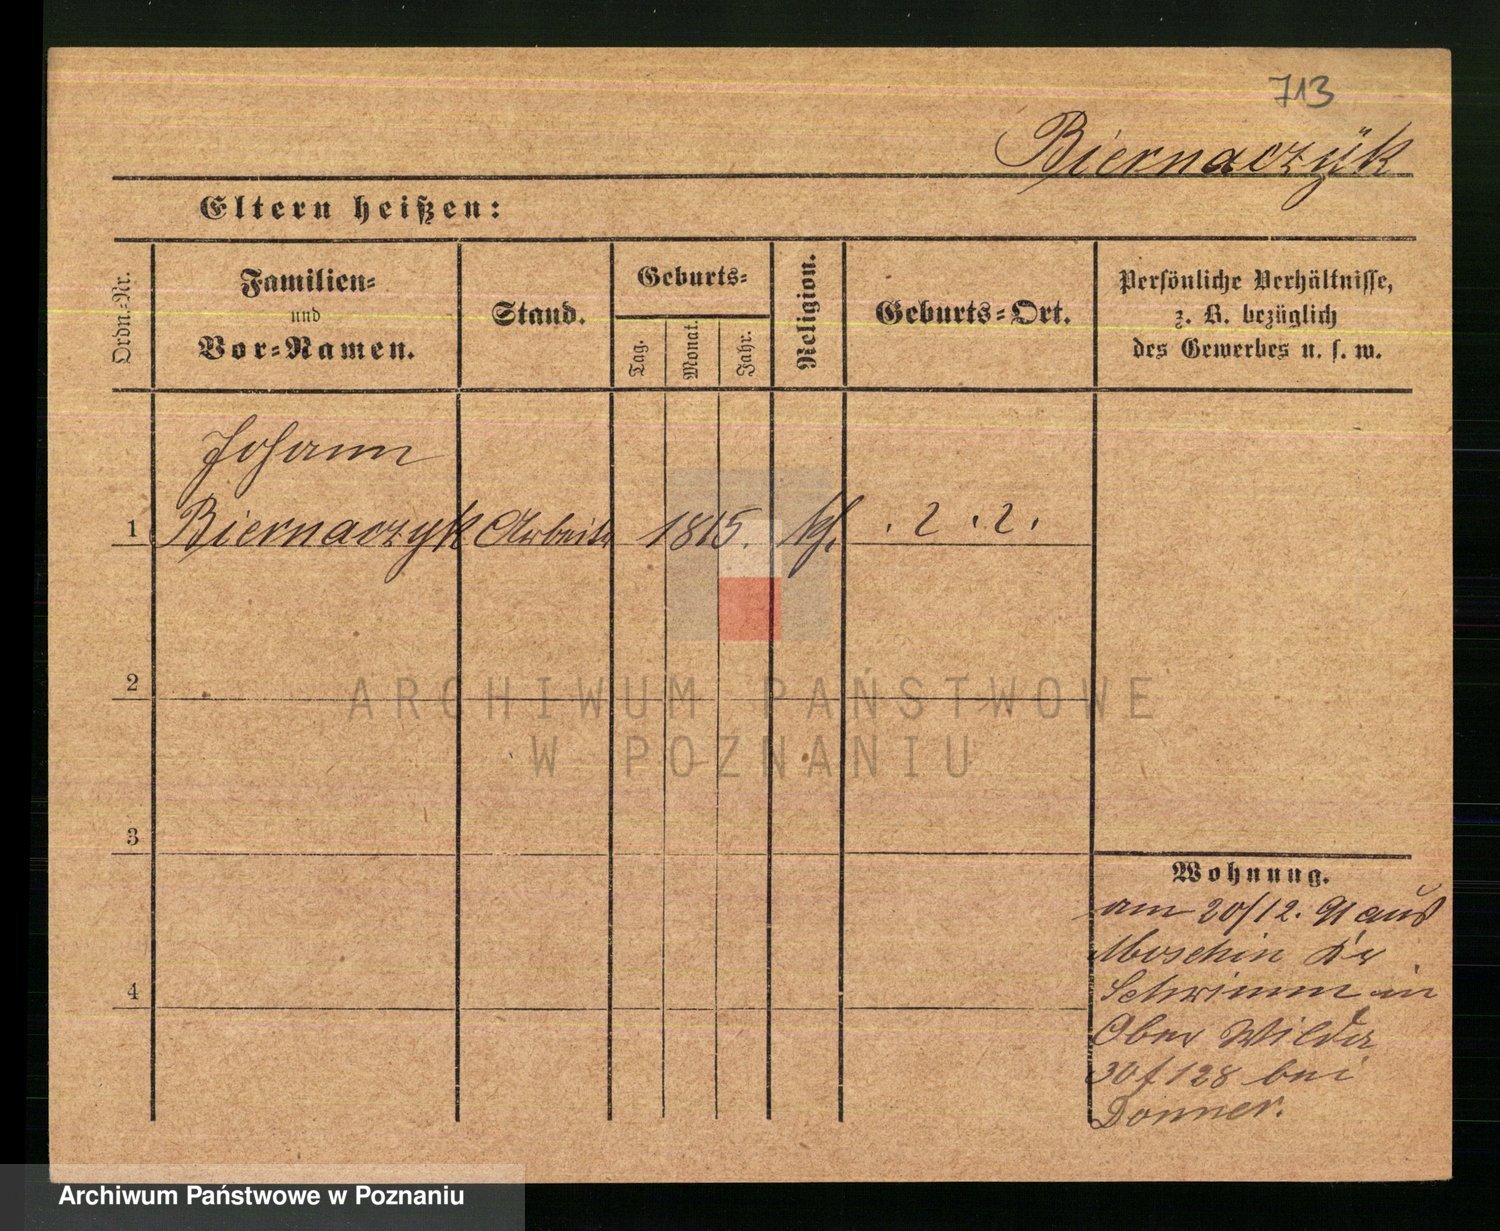 713
Biernaczÿk
Eltern heißen:
Ordn.-Nr.
Familien-
und
Vor-Namen.
Stand.
Geburts-
Tag.
Monat.
Jahr.
Religion.
Geburts-Ort.
Persönliche Verhältnisse,
z. B. bezüglich
des Gewerbes u. s. w.
Johann
1 Biernaczyk Arbeit 1815. kf. . 2 . 2 .
2
3
4
Wohnung.
am 20/12. 91 aus
Moschin Kr
Schrimm in
Ober Wilda
128 bei
Donner.
ARCHIWUM PAŃSTWOWE
W POZNANIU
Archiwum Państwowe w Poznaniu